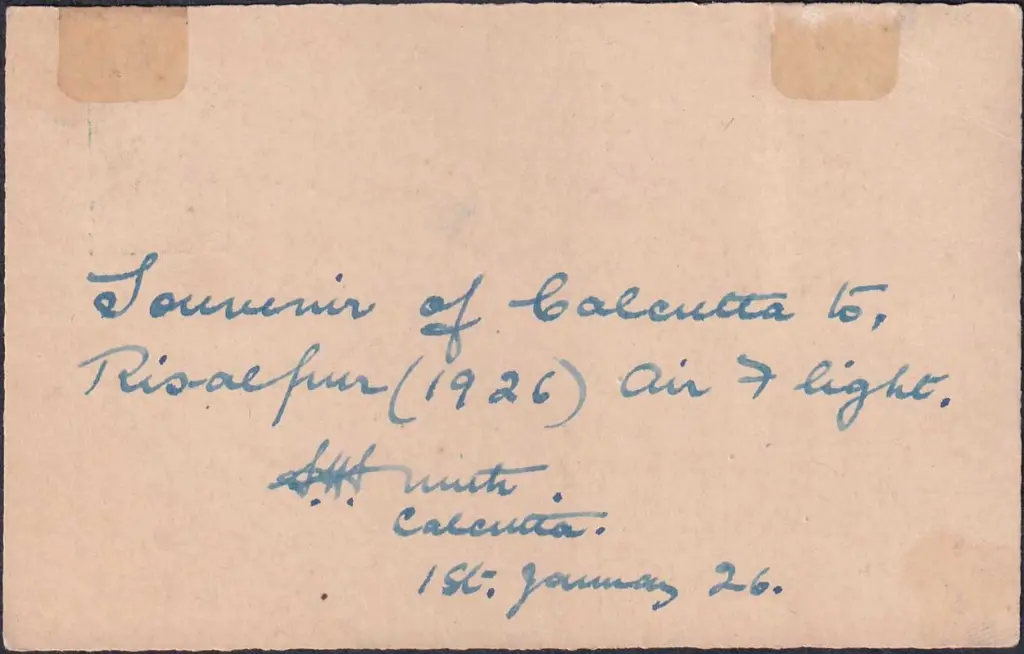 Souvenir of Calcutta to,
Risalpur (1926) Air Flight.
S.H. Smith.
Calcutta.
1st. January 26.